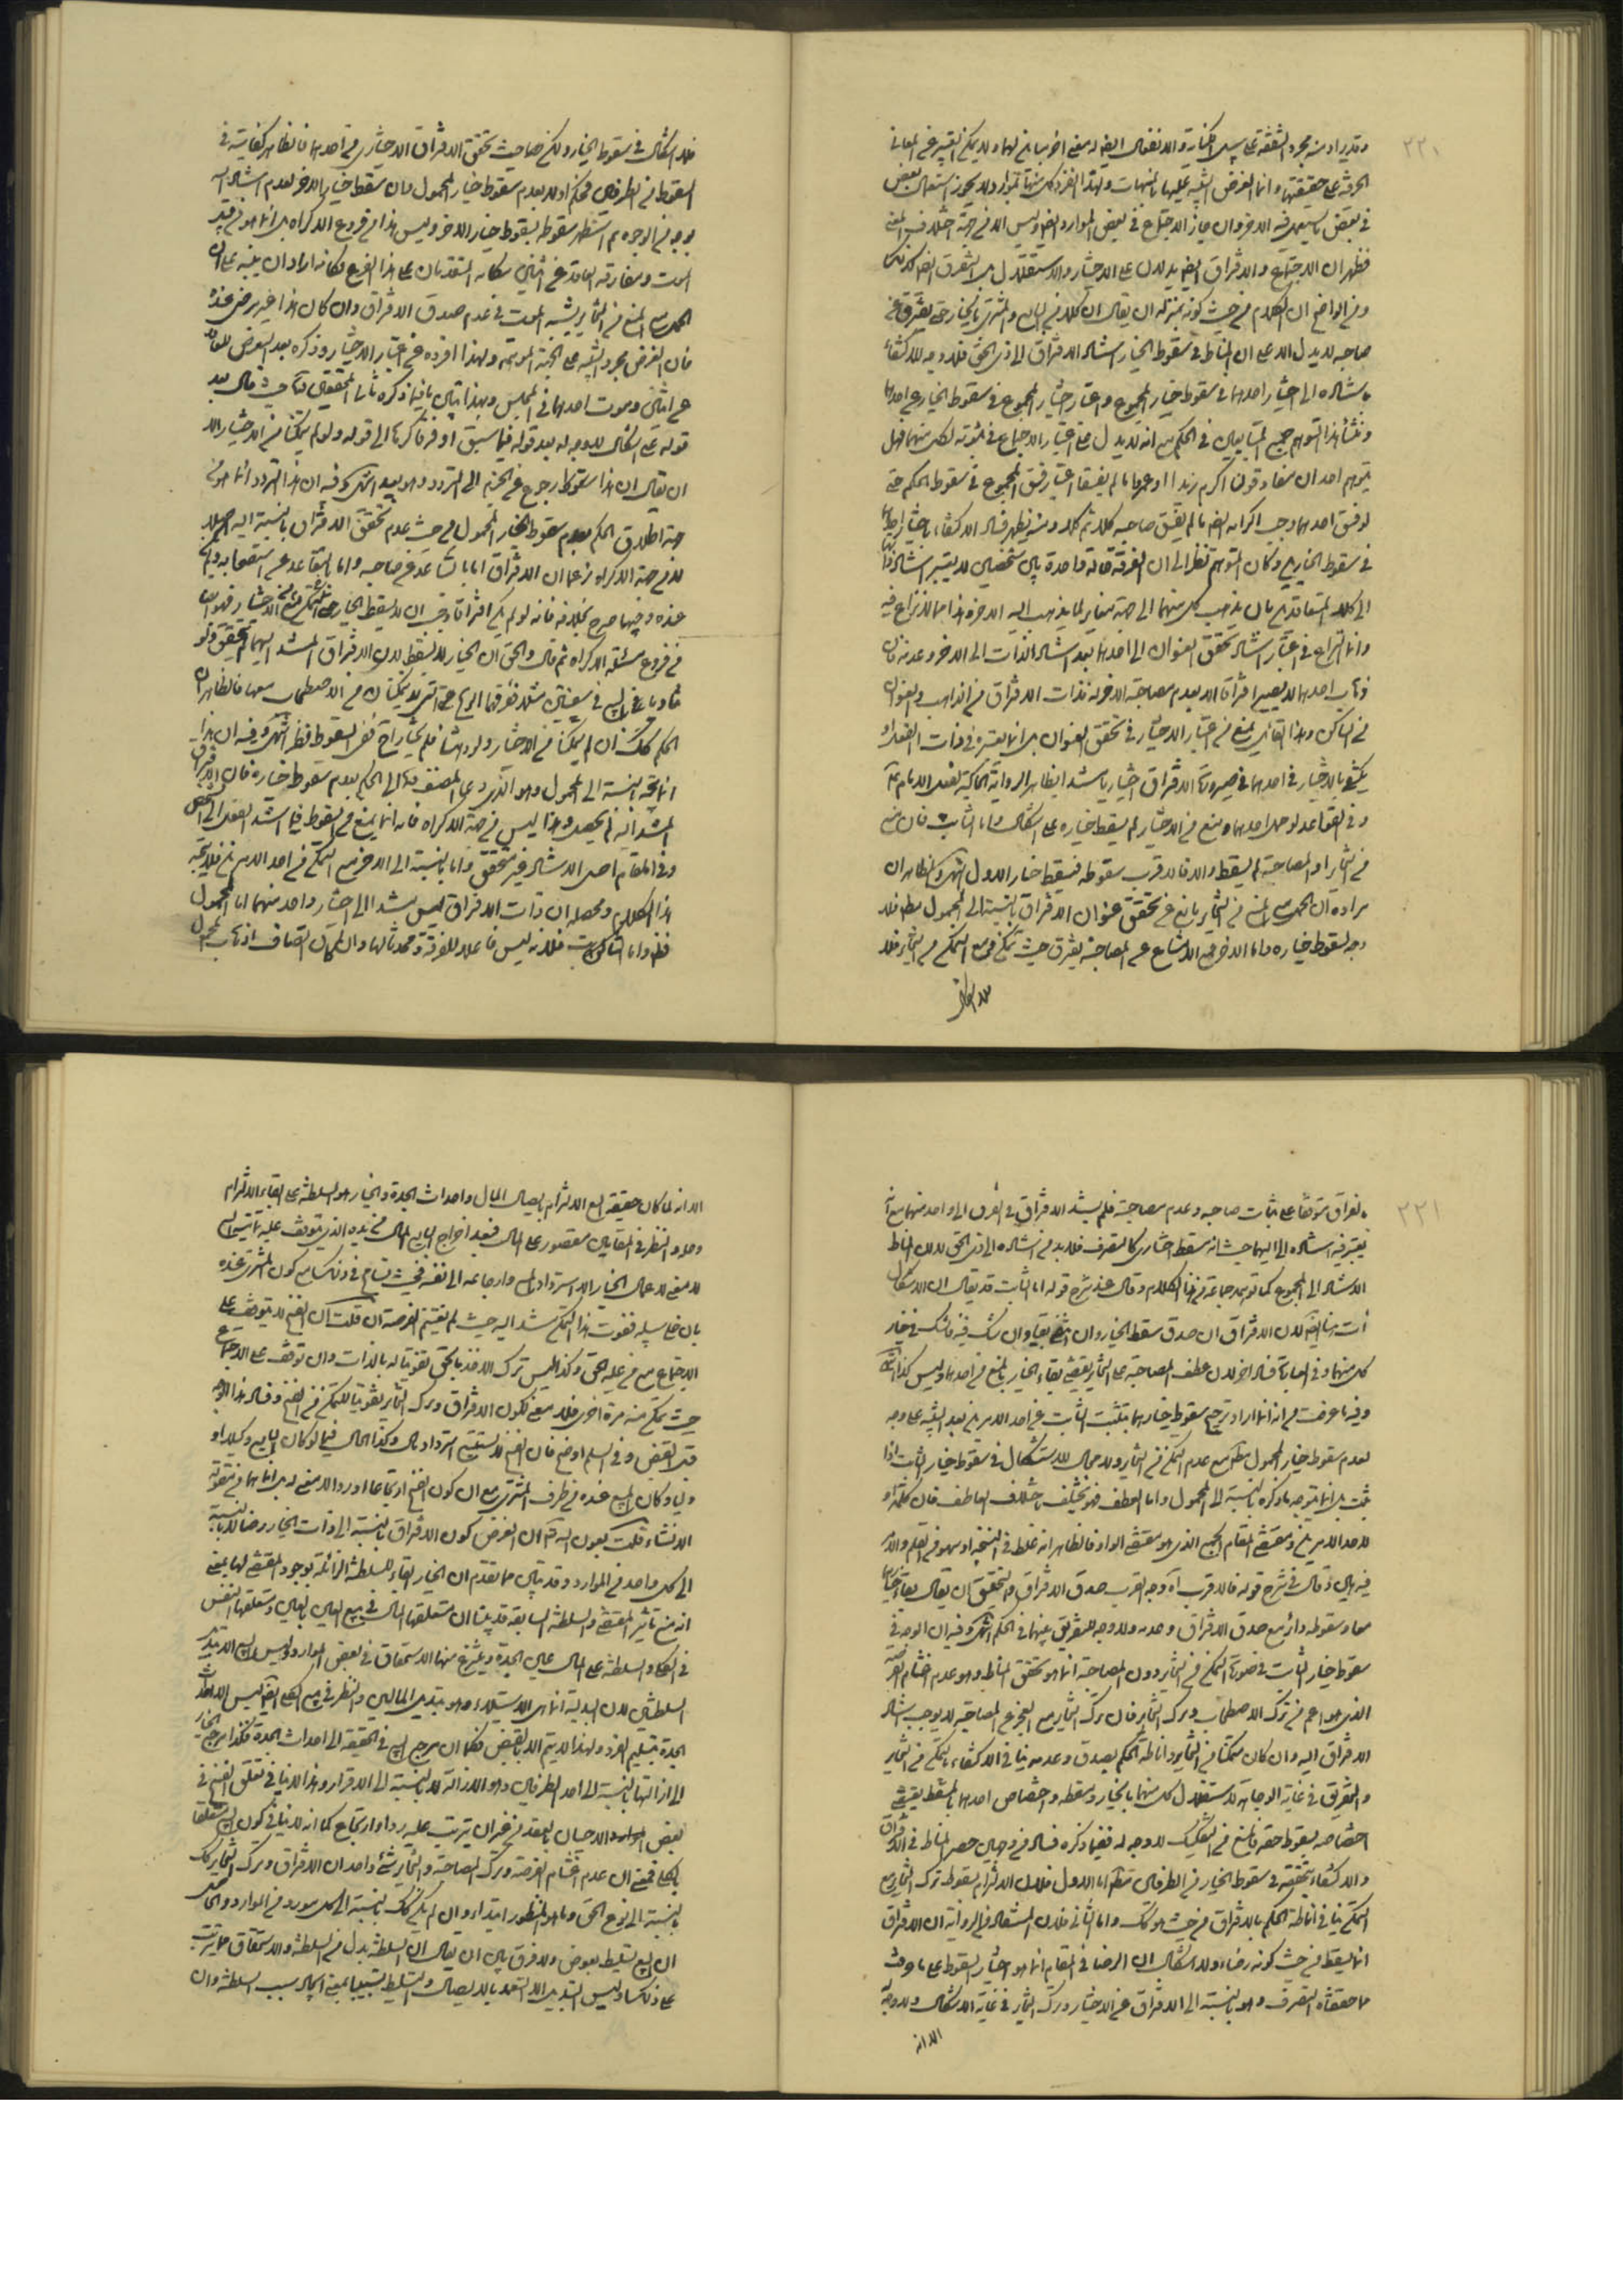 ٢٢٠
وقد يراد منه مجرد الشفقة على سبيل الكناية والانفعال ايضا معنى اخر مباين لهما ولا يمكن التعبير عن المعاني
الحرفية على حقيقتها وانما الغرض التنبيه عليها بالمنبهات ولهذا انفرد كل منها بموارد ولا يجوز استعمال بعض
في بعض
فظهر ان الاجتماع والافتراق ايضا لا يدلان على الاختيار والاستقلال بل التفرق ايضا كذلك
ومن الواضح ان الكلام من حيث كونه بمنزلة ان يقال ان كلا من البايع والمشتري بالخيار حتى يتفرق عن
صاحبه لا يدل الا على ان المناط في سقوط الخيار استناد الافتراق الى ذي الحق فلا وجه للاكتفاء
باستناده الى اختيار احدهما في سقوط خيار المجموع واعتبار اختيار المجموع في سقوط الخيار عن احدهما
ومنشأ هذا التوهم جمع المتبايعين في الحكم مع انه لا يدل على اعتبار الاجتماع في ثبوته لكل منهما فهل
يتوهم احد ان مفاد قولنا اكرم زيدا او عمروا ما لم يفسقا اعتبار فسق المجموع في سقوط الحكم حتى
لو فسق احدهما وجب اكرامه ايضا ما لم يفسق صاحبه كلا ثم كلا ومنه يظهر فساد الاكتفاء باختيار احدهما
في سقوط الخيارين وكان المتوهم نظر الى ان الفرقة قائمة واحدة بين شخصين لا يعتبر استنادها
الى كلا المتعاقدين بان يذهب كل منهما الى جهة مغايرة لما يذهب اليه الاخر وهذا مما لا نزاع فيه
وانما النزاع في اعتبار استناد تحقق العنوان الى احدهما بعد استناد الذات الى الاخر وعدمه فان
ذهاب احدهما لا يصير افتراقا الا بعدم مصاحبة الاخر له فذات الافتراق من الذاهب والعنوان
من الساكن وهذا القائل يمنع من اعتبار الاختيار في تحقق العنوان بل انما يعتبره في ذات الفعل او
يكتفي بالاختيار في احدهما في صيرورة الافتراق اختياريا مستندا بظاهر الرواية الحاكية لفعل الامام عليه
وفي القواعد لو حمل احدهما ومنع من الاختيار لم يسقط خياره على اشكال واما الثابت فان منع
من التخاير او المصاحبة لم يسقط والا فالاقرب سقوطه فيسقط خيار الاول انتهى والظاهر ان
مراده ان الحمل مع المنع من التخاير مانع عن تحقق عنوان الافتراق بالنسبة الى المحمول مط فلا
وجه لسقوط خياره واما الاخر فمع الامتناع عن المصاحبة يفترق حيث تمكن ومع التمكن من التخاير فلا
فلا اشكال في سقوط الخيار ولكن حيث تحقق الافتراق الاختياري من احدهما فالظاهر كفايته في
السقوط من الطرفين فحكم اولا بعدم سقوط خيار المحمول وان سقط خيار الاخر لعدم استناد اليه
بوجه من الوجوه ثم استظهر سقوطه بسقوط خيار الاخر وليس هذا من فروع الاكراه بل انما هو من قبيل
الموت ومفارقة العاقد عن اثنين مكانه المتقدمان على هذا الفرع فكانه اراد ان ينبه على ان
الحمل مع المنع من التخاير يشبه الموت في عدم صدق الافتراق وان كان هذا غير مرضي عنده
فان الغرض مجرد التنبيه على الجهة الموهمة ولهذا افرده عن اعتبار الاختيار وذكره بعد التعرض للعاقد
عن اثنين وموت احدهما في المجلس وبهذا تبين ما فيما ذكره ثاني المحققين حيث قال بعد
قوله على اشكال لا وجه له بعد قوله فيما سبق او فرقا كرها الى قوله ولو لم يتمكنا من الاختيار الا
ان يقال ان هذا سقوطا رجوع عن الجزم الى التردد وهو بعيد انتهى وفيه ان هذا التردد انما هو في
جهة اطلاق الحكم بعدم سقوط الخيار المحمول من حيث عدم تحقق الافتراق بالنسبة اليه اصلا
لا من جهة الاكراه زعما ان الافتراق اما بالتباعد عن صاحبه واما بالتقاعد عن استصحابه
عنده
في فروع مسئلة الاكراه ثم قال والحق ان الخيار لا يسقط لان الافتراق المستند اليهما لم يتحقق ولو
تناديا في البيع في سفينتين مثلا ففرقهما الريح حتى لا يمكنان من الاصطحاب معها فالظاهر ان
الحكم كك ان لم يتمكنا من الاختيار ولو امكنا فلم يختارا ففي السقوط نظر انتهى وفيه ان هذا
انما يتجه بالنسبة الى المحمول وهو الذي دعى المصنف الى الحكم بعدم سقوط خياره فان الافتراق
المستند اليه لم يحصل وهذا ليس من جهة الاكراه فانه انما يمنع من السقوط فيما استند الفعل الى الشخص
وفي المقام اصل الاستناد غير متحقق واما بالنسبة الى الاخر مع التمكن من احد الامرين فلا يتجه
هذا الكلام ومحصله ان ذات الافتراق ليس مستندا الى اختيار واحد منهما اما المحمول
فظ واما الثابت فلانه ليس فاعلا للفرقة ومحدثا لها وان لم يكن اتصاف ذهاب المحمول
٢٢١
بالفراق متوقفا على ثبات صاحبه وعدم مصاحبته فلم يستند الافتراق في العرف الى واحد منهما مع انه
يعتبر فيه استناده الى اليهما حيث انه مسقط اختياري كالتصرف فلا بد من استناده الى ذي الحق لا ان المناط
الاستناد الى المجموع كما توهمه جماعة من الاعلام وقال عند شرح قوله اما الثابت قد يقال ان الاشكال
آت هنا ايضا لان الافتراق ان صدق سقط الخياران والا بقيا وان شك فيه فالشك في خيار
كل منهما وفي العبارة فساد اخر لان عطف المصاحبة على التخاير يقتضي بقاء الخيار بالمنع من احدهما وليس كذلك انتهى
وفيه ما عرفت من انه انما اراد ترجيح سقوط خيارهما بتشبث الثابت عن احد الامرين بعد التنبيه على وجه
لعدم سقوط خيار المحمول مط مع عدم التمكن من التخاير ولا مجال للاستشكال في سقوط خيار الثابت اذا
ثبت بل انما يتوجه ما ذكره بالنسبة الى المحمول واما العطف فهو يختلف باختلاف العاطف فان كلمة او
لاحد الامرين ومقتضى المقام الجمع الذي هو مقتضى الواو فالظاهر انه غلط في النسخة او سهو من القلم والامر
فيه هين وقال في شرح قوله فالاقرب اه وجه القرب صدق الافتراق والتحقيق ان يقال بقاء خيارهما
معا وسقوطه دائر مع صدق الافتراق وعدمه ولا وجه للتفريق بينهما في الحكم انتهى وفيه ان الوجه في
سقوط خيار الثابت في صورة التمكن من التخاير دون المصاحبة انما هو تحقق المناط وهو عدم اغتنام الفرصة
الذي هو اعم من ترك الاصطحاب وترك التخاير فان ترك التخاير مع العجز عن المصاحبة لا يوجب استناد
الافتراق اليه وان كان متمكنا من التخاير واناطة الحكم بصدق وعدمه ينافي الاكتفاء بالتمكن من التخاير
والتفريق في غاية الوجاهة لاستقلال كل منهما بالخيار ومسقطه واختصاص احدهما بالمسقط يقتضي
اختصاصه بسقوط حقه فالمنع من التفكيك لا وجه له ففيما ذكره فساد من وجهين حصر المناط في الافتراق
والاكتفاء بتحققه في سقوط الخيار من الطرفين مط اما الاول فلان الالتزام بسقوطه بترك التخاير مع
التمكن ينافي اناطة الحكم بالافتراق من حيث هو كك واما الثاني فلان المستفاد من الرواية ان الافتراق
انما يسقط من حيث كونه رضاء ولا اشكال ان الرضا في المقام انما هو اختيار السقوط على ما عرفت
مما حققناه التصرف وهو بالنسبة الى الافتراق عن الاختيار وترك التخاير في غاية الاشكال ولا وجه
الا انه
الا انه لما كان حقيقة البيع الالتزام بايصال المال واحداث الجدة والخيار هو السلطنة على ابقاء الالتزام
وحله والنظر في المقابلين مقصور على المال فبعد اخراج البايع المال من يده الذي يتوقف عليه
لا معنى لاعمال الخيار الا استرداد المال وارجاعه الى نفسه فحيث تسامح في ذلك مع كون المشتري عنده
بان خلى سبيله ففوت هذا التمكن مستند اليه حيث لم يغتنم الفرصة ان قلت ان الفسخ لا يتوقف على
الاجتماع مع من عليه الحق وكذا ليس ترك الاخذ بالحق تفويتا له بالذات وان توقف على الاجتماع
حيث يمكن منه مرة اخرى فلا معنى لكون الافتراق وترك التخاير تفويتا للتمكن من الفسخ وفساد هذا الوجه
قبل القبض وفي السلم اوضح فان الفسخ لا يستتبع استرداد مال وكذا الحال فيما لو كان البايع وكيلا او
وليا وكان المبيع عنده من طرف المشتري مع ان كون الفسخ ارتجاعا او ردا لا معنى له بل انما هما من متفرعات
الانشاء قلت بعون الله تعالى ان الغرض كون الافتراق بالنسبة الى ذات الخيار رضا لا بالنسبة
الى كل واحد من الموارد وقد تبين مما تقدم ان الخيار ابقاء للسلطنة الزائلة بوجود المقتضي لها بمعنى
انه منع تاثير المقتضي والسلطنة السابقة قد بينا ان متعلقها المال في بيع العين بالعين ومتعلقها النفس
في الكلي والسلطنة على المال عين الجدة وينتزع منها الاستحقاق في بعض الموارد وليس البيع الا تبديل
السلطنتين لان البدلية انما هي الاستيلاء وهو بتبديل المالين والنظر في بيع الكلي ايضا ليس الا لاحداث
الجدة بتسليم الفرد ولهذا لا يتم الا بالقبض فكما ان مرجع البيع في الحقيقة الى احداث الجدة فكذا مرجع الخيار
الى ازالتها بالنسبة الى احد الطرفين وهو الازالة لا بالنسبة الى الاقرار وهذا لا ينافي تعلق الفسخ في
بعض الاحيان بالعقد من غير ان يترتب عليه رد او ارتجاع كما انه لا ينافي كون البيع متعلقا
بالكلي فمعنى ان عدم اغتنام الفرصة وترك المصاحبة والتخاير شئ واحد ان الافتراق وترك التخاير كك
بالنسبة الى نوع الحق وما هو المنظور ابتداء وان لم يكن كك بالنسبة الى كل مورد من الموارد والحاصل
ان البيع تسليط بعوض ولا فرق بين ان يقال ان السلطنة بدل من السلطنة والاستحقاق مما يترتب
على ذلك وليس التبديل الا التعهد بالايصال والتسليط تسبيبا بمعنى ايجاد سبب السلطنة وان